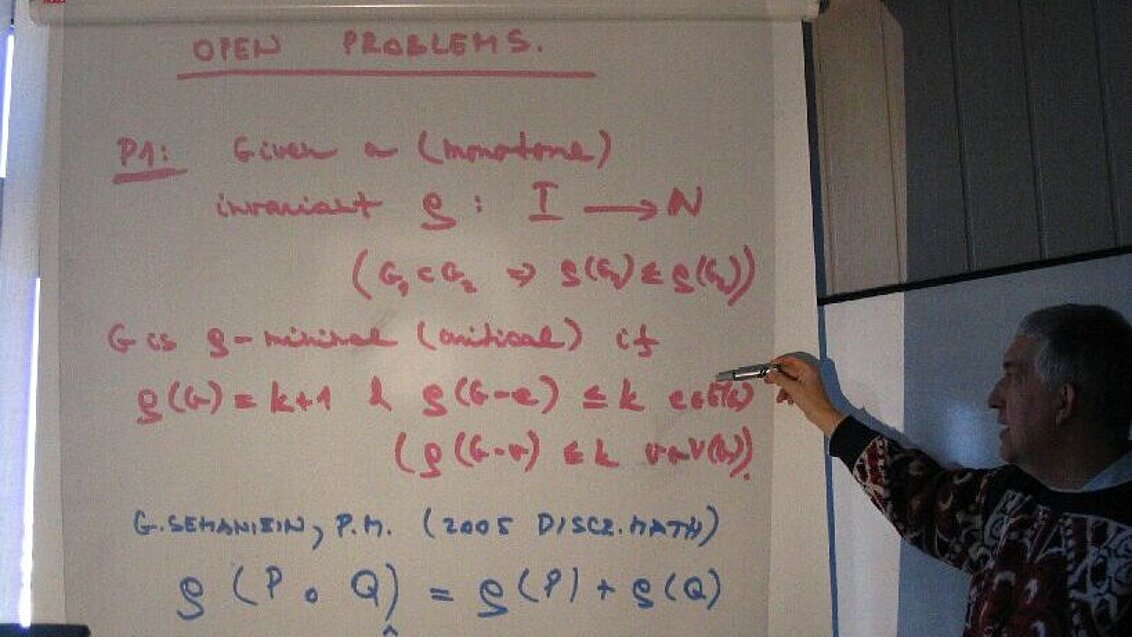 OPEN PROBLEMS.
P1: Given a (monotone)
invariant ρ : I → N
(G₁ ⊂ G₂ ⇒ ρ(G₁) ≤ ρ(G₂))
G is ρ-minimal (critical) if
ρ(G) = k+1 & ρ(G-e) ≤ k e∈E(G)
(ρ(G-v) ≤ k v∈V(G)).
G. SEMANIŠIN, P.M. (2005 DISCR. MATH)
ρ(P ∘ Q) = ρ(P) + ρ(Q)